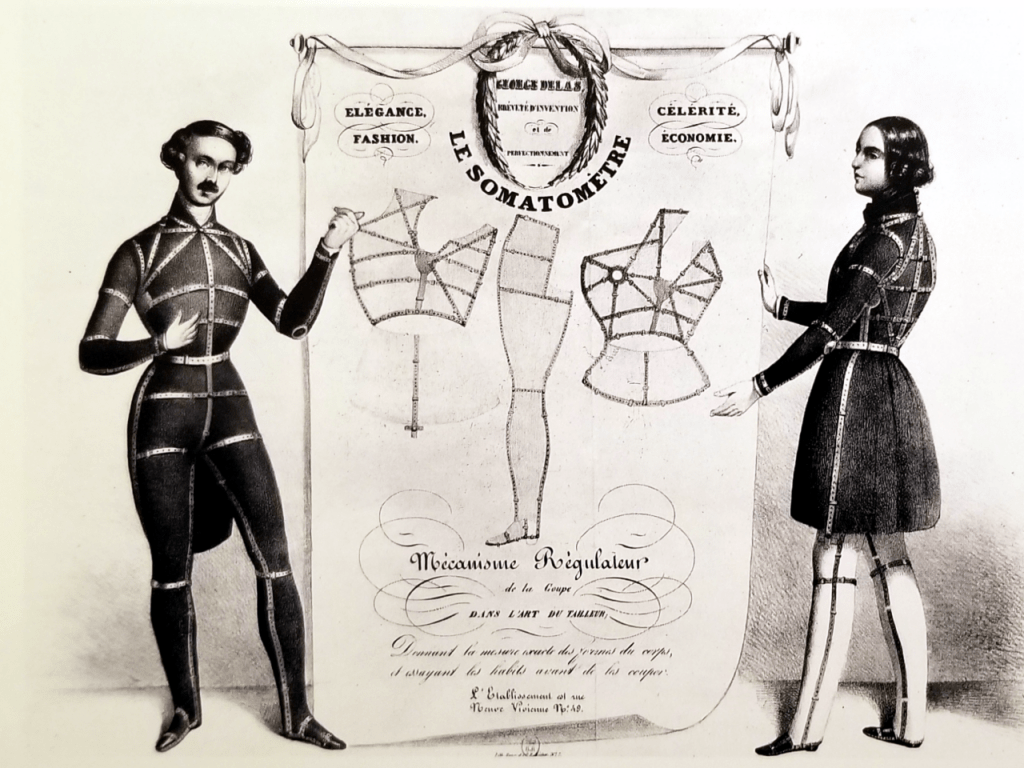 GEORGE DELAS
BRÉVETÉ D'INVENTION
et de
PERFECTIONNEMENT
ELÉGANCE,
FASHION.
CÉLÉRITÉ,
ÉCONOMIE.
LE SOMATOMÈTRE
Mécanisme Régulateur
de la Coupe
DANS L'ART DU TAILLEUR,
Donnant la mesure exacte des formes du corps,
et essayant les habits avant de les couper.
L'Etablissement est rue
Neuve Vivienne Nº. 49.